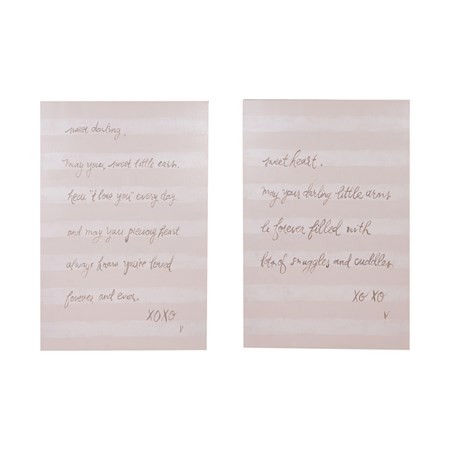 sweet darling,
may your sweet little ears
hear "i love you" every day
and may your precious heart
always know you're loved
forever and ever.
XOXO
sweetheart,
may your darling little arms
be forever filled with
lots of snuggles and cuddles
XO XO